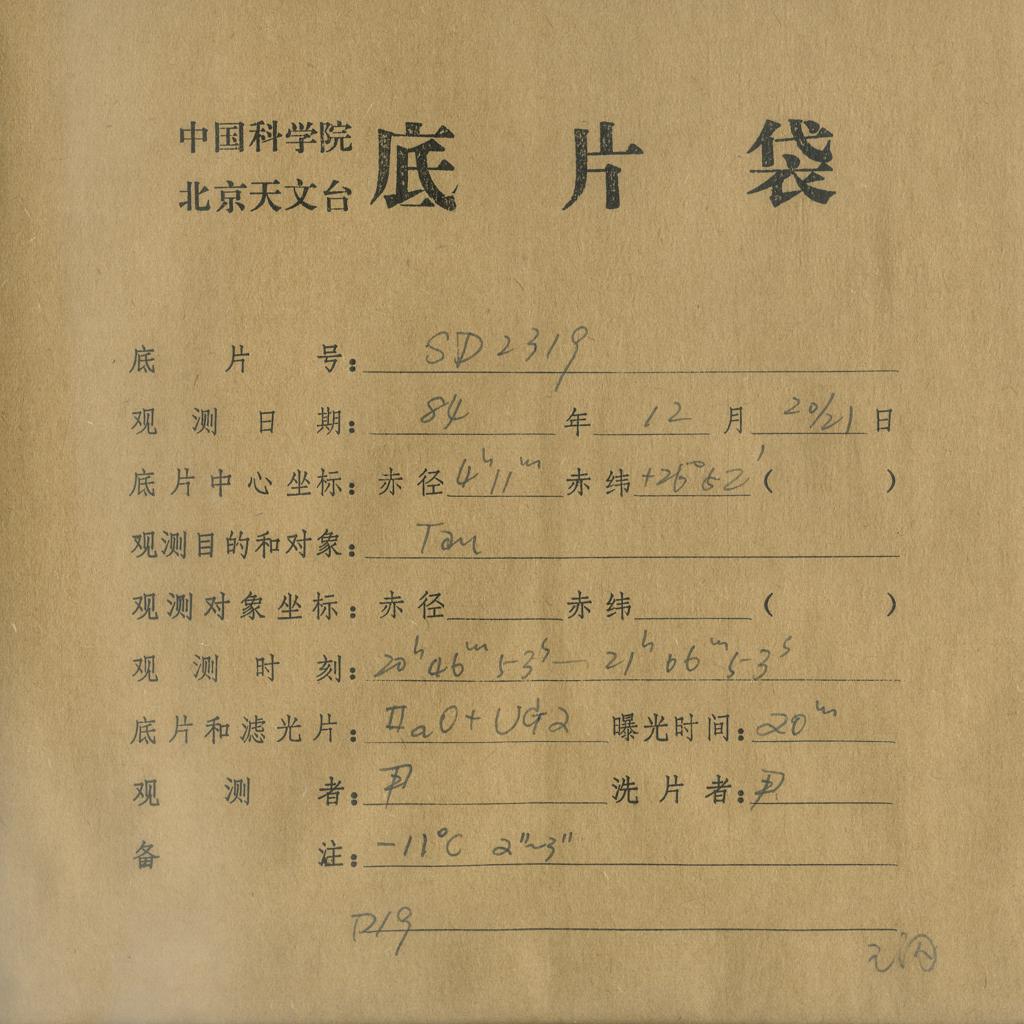 中国科学院
北京天文台
底片袋
底片号: SD2319
观测日期: 84年12月20/21日
底片中心坐标: 赤径4h11m赤纬+26°52′( )
观测目的和对象: Tau
观测对象坐标: 赤径 赤纬 ( )
观测时刻: 20h46m53s—21h06m53s
底片和滤光片: IIaO+UG2 曝光时间: 20m
观测者: 尹 洗片者: 尹
备注: -11°C 2″~3″
D19